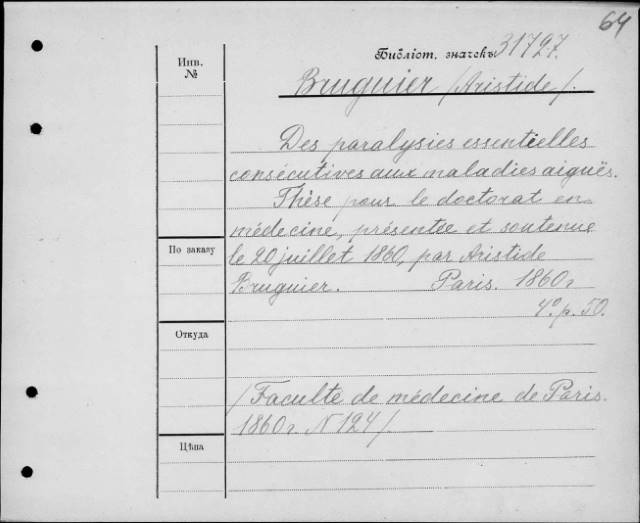 64
Библіот. значекъ 31727.
Инв.
№
Bruguier /Aristide/.
Des paralysies essentielles
consécutives aux maladies aiguës.
Thèse pour le doctorat en
médecine, présentée et soutenue
По заказу
le 20 juillet 1860, par Aristide
Bruguier. Paris. 1860 г
4º. p. 50.
Откуда
/Faculte de médecine de Paris.
1860 г. N 124/
Цѣна